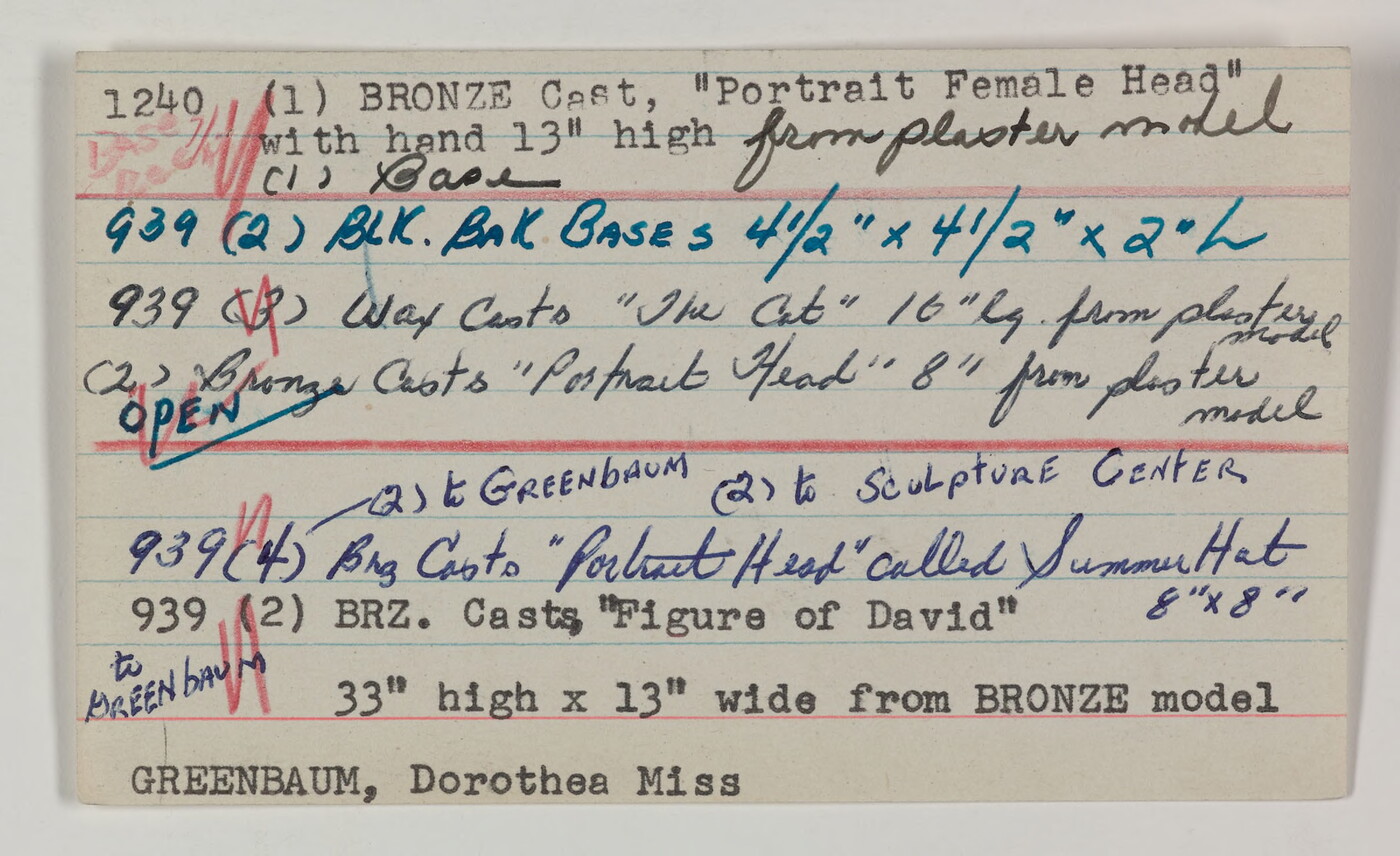 1240 (1) BRONZE Cast, "Portrait Female Head"
with hand 13" high from plaster model
(1) Base
939 (2) BLK. BAK BASES 4 1/2" x 4 1/2" x 2" h
939 (3) Wax Casts "The Cat" 16" lg. from plaster model
(2) Bronze Casts "Portrait Head" 8" from plaster model
OPEN
(2) to GREENBAUM (2) to SCULPTURE CENTER
939 (4) Brz Casts "Portrait Head" called Summer Hat
8" x 8"
939 (2) BRZ. Casts, "Figure of David"
to GREENBAUM
33" high x 13" wide from BRONZE model
GREENBAUM, Dorothea Miss